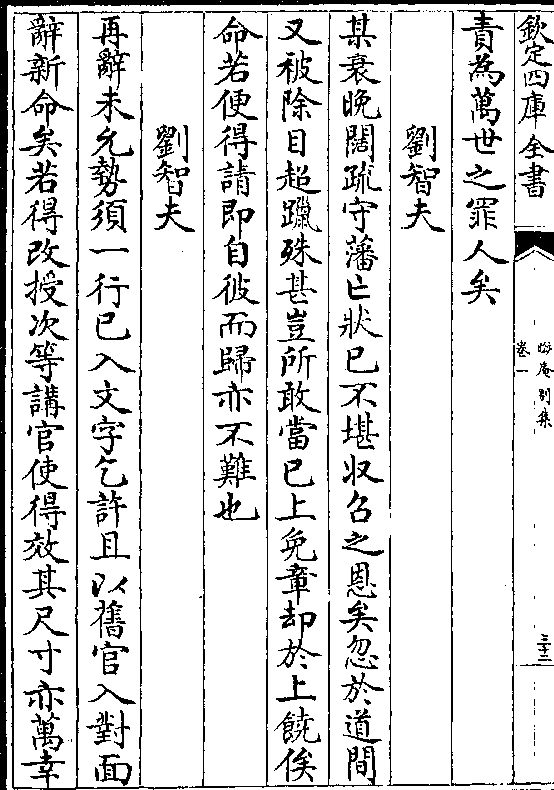 欽定四庫全書
晦庵別集
卷一
三十二
責為萬世之罪人矣
劉智夫
某衰晚闊疏守藩亡狀已不堪收召之恩矣忽於道間
又被除目超躐殊甚豈所敢當已上免章却於上饒俟
命若便得請即自彼而歸亦不難也
劉智夫
再辭未允勢須一行已入文字乞許且以舊官入對面
辭新命矣若得改授次等講官使得效其尺寸亦萬幸